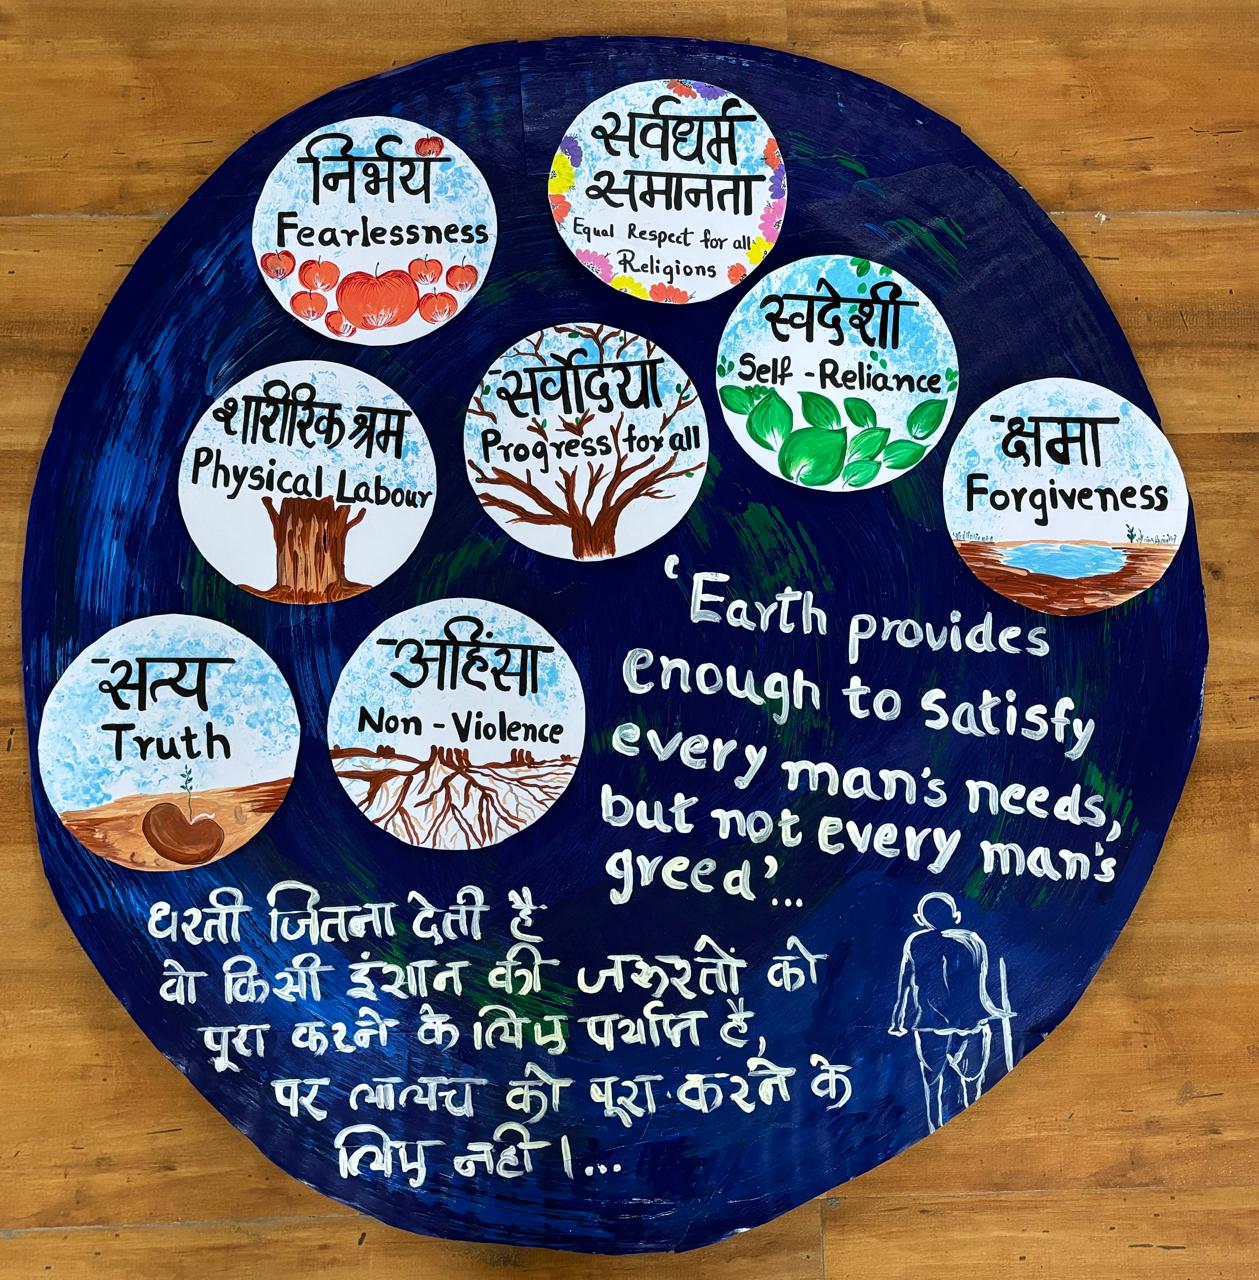 निर्भय
Fearlessness
सर्वधर्म
समानता
Equal Respect for all
Religions
स्वदेशी
Self - Reliance
शारीरिक श्रम
Physical Labour
सर्वोदया
Progress for all
क्षमा
Forgiveness
सत्य
Truth
अहिंसा
Non - Violence
'Earth provides
enough to satisfy
every man's needs,
but not every man's
greed'...
धरती जितना देती है
वो किसी इंसान की जरूरतों को
पूरा करने के लिए पर्याप्त है,
पर लालच को पूरा करने के
लिए नही।...